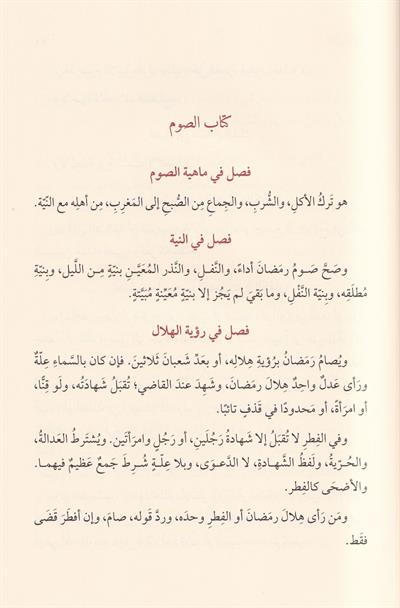 كتاب الصوم
فصل في ماهية الصوم
هو تَركُ الأكلِ، والشُّربِ، والجِماعِ مِن الصُّبحِ إلى المَغرِبِ، مِن أهلِه مع النِّيّة.
فصل في النية
وصَحَّ صَومُ رمَضانَ أداءً، والنَّفلِ، والنَّذرِ المُعيَّنِ بنيّةٍ مِن اللَّيل، وبنِيّةٍ
مُطلَقِه، وبنِيّة النَّفْلِ، وما بَقيَ لم يَجُز إلا بنيّةٍ مُعيَّنةٍ مُبيَّتةٍ.
فصل في رؤية الهلال
ويُصامُ رمَضانُ برُؤيةِ هِلالِه، أو بعَدِّ شَعبانَ ثَلاثينَ. فإن كان بالسَّماءِ عِلّةٌ
ورَأى عَدلٌ واحِدٌ هِلالَ رمَضانَ، وشَهِدَ عندَ القاضي؛ تُقبَلُ شَهادتُه، ولَو قِنًّا،
أو امرَأةً، أو مَحدودًا في قَذفٍ تائبًا.
وفي الفِطرِ لا تُقبَلُ إلا شَهادةُ رَجُلَينِ، أو رَجُلٍ وامرَأتَينِ. ويُشتَرطُ العَدالةُ،
والحُرّيةُ، ولَفظُ الشَّهادةِ، لا الدَّعوَى، وبلا عِلّةٍ شُرِطَ جَمعٌ عَظيمٌ فيهما.
والأضحَى كالفِطر.
ومَن رَأى هِلالَ رمَضانَ أو الفِطرِ وحدَه، ورد قَوله، صامَ، وإن أفطَرَ قَضَى
فقَط.